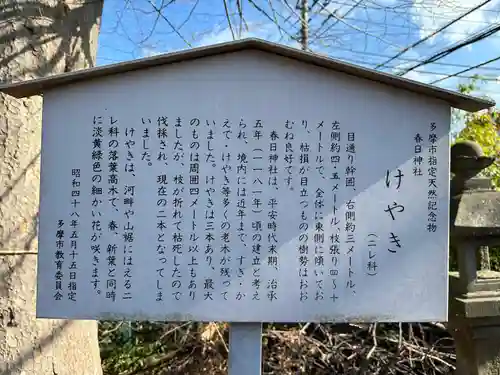 多摩市指定天然記念物
春日神社
けやき
（ニレ科）
目通り幹囲、右側約三メートル、
左側約四・五メートル、枝張り8～十
メートルで、全体に東側に傾いてお
り、枯損が目立つものの樹勢はおお
むね良好です。
春日神社は、平安時代末期、治承
五年（一一八一年）頃の建立と考え
られ、境内には近年まで、すぎ・か
えで・けやき等多くの老木が残って
いました。けやきは三本あり、最大
のものは周囲四メートル以上もあり
ましたが、枝が折れて枯死したので
伐採され、現在の二本となってしま
いました。
けやきは、河畔や山裾にはえるニ
レ科の落葉高木で、春、新葉と同時
に淡黄緑色の細かい花がつきます。
昭和四十八年五月十五日指定
多摩市教育委員会